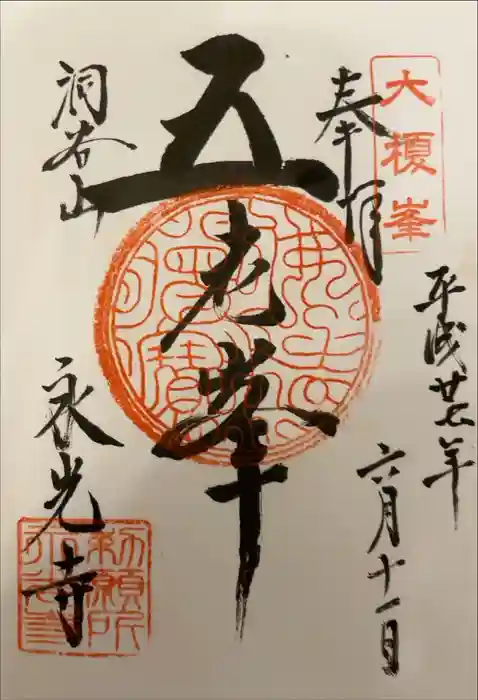 大榎峯
奉拝
平成廿七年
六月十一日
五老峯
洞谷山
永光寺
勅願所